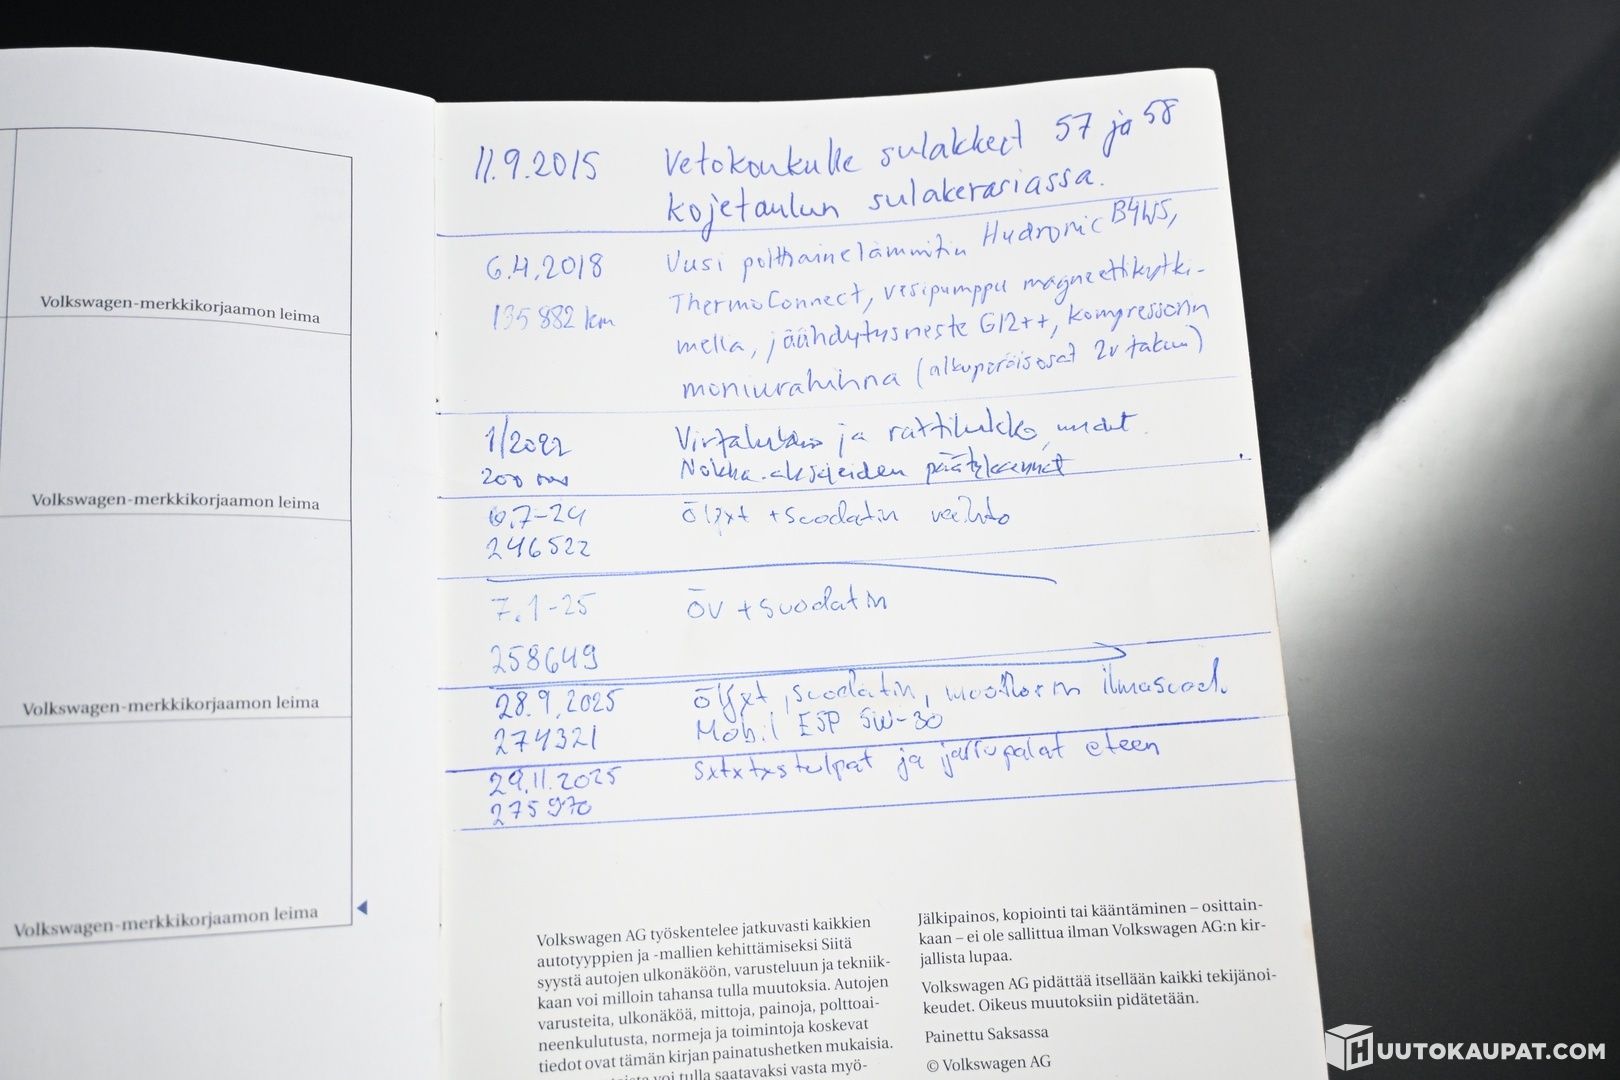 Volkswagen-merkkikorjaamon leima
Volkswagen-merkkikorjaamon leima
Volkswagen-merkkikorjaamon leima
Volkswagen-merkkikorjaamon leima
11.9.2015 Vetokoukulle sulakkeet 57 ja 58
kojetaulun sulakerasiassa.
6.4.2018 Uusi polttoainelämmitin Hydronic B4WS,
195882 km ThermoConnect, vesipumppu magneettikytki-
mellä, jäähdytysneste G12++, kompressorin
moniurahihna (alkuperäisosat 2v takuu)
1/2022 Virtalukko ja rattilukko uudet.
Nokka-akseleiden päätykannet
.7-24 Öljyt + suodatin vaihto
246522
7.1-25 ÖV + suodatin
258649
28.9.2025 Öljyt, suodatin, moottorin ilmasuod.
274321 Mobil ESP 5W-30
29.11.2025 Sytytystulpat ja jarrupalat eteen
275970
Volkswagen AG työskentelee jatkuvasti kaikkien
autotyyppien ja -mallien kehittämiseksi Siitä
syystä autojen ulkonäköön, varusteluun ja tekniik-
kaan voi milloin tahansa tulla muutoksia. Autojen
varusteita, ulkonäköä, mittoja, painoja, polttoai-
neenkulutusta, normeja ja toimintoja koskevat
tiedot ovat tämän kirjan painatushetken mukaisia.
voi tulla saatavaksi vasta myö-
Jälkipainos, kopiointi tai kääntäminen – osittain-
kaan – ei ole sallittua ilman Volkswagen AG:n kir-
jallista lupaa.
Volkswagen AG pidättää itsellään kaikki tekijänoi-
keudet. Oikeus muutoksiin pidätetään.
Painettu Saksassa
© Volkswagen AG
HUUTOKAUPAT.COM